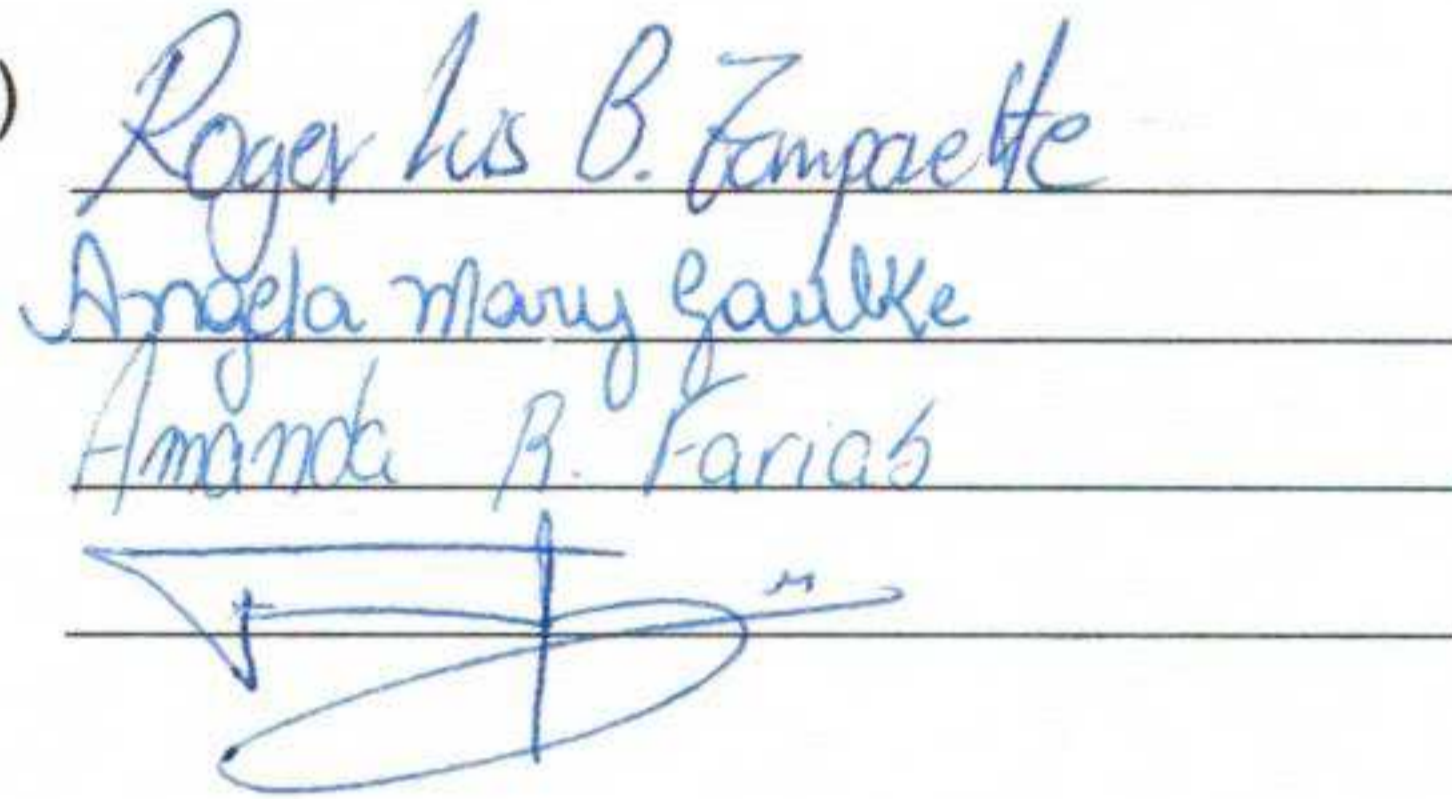 )
Roger Luis B. Zampaette
Angela Mary Gaulke
Amanda R. Farias